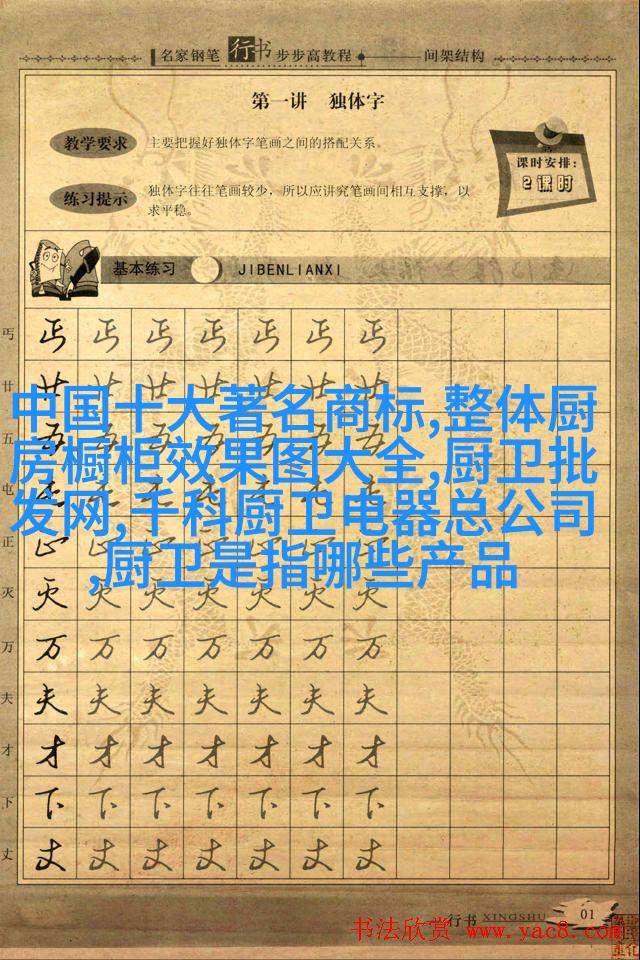 名家钢笔 行书 步步高教程 间架结构
第一讲 独体字
教学要求 主要把握好独体字笔画之间的搭配关系。
课时安排:
2课时
练习提示 独体字往往笔画较少，所以应讲究笔画间相互支撑，以
求平稳。
基本练习 JIBENLIANXI
丐 丐 丐 丐 丐 丐 丐 丐
廿 廿 廿 廿 廿 廿 廿 廿
中国十大著名商标,整体厨
房橱柜效果图大全,厨卫批
发网,千科厨卫电器总公司
,厨卫是指哪些产品
五
屯
正
灭 灭 灭 灭 灭 灭 灭 灭
万 万 万 万 万 万 万 万
夫 夫 夫 夫 夫 夫 夫 夫
才 才 才 才 才 才 才 才
下 下 下 下 下 下 下 下
丈 丈 丈 丈 丈 丈 丈 丈
行书 XINGSHU 01
书法欣赏 www.yac8.com